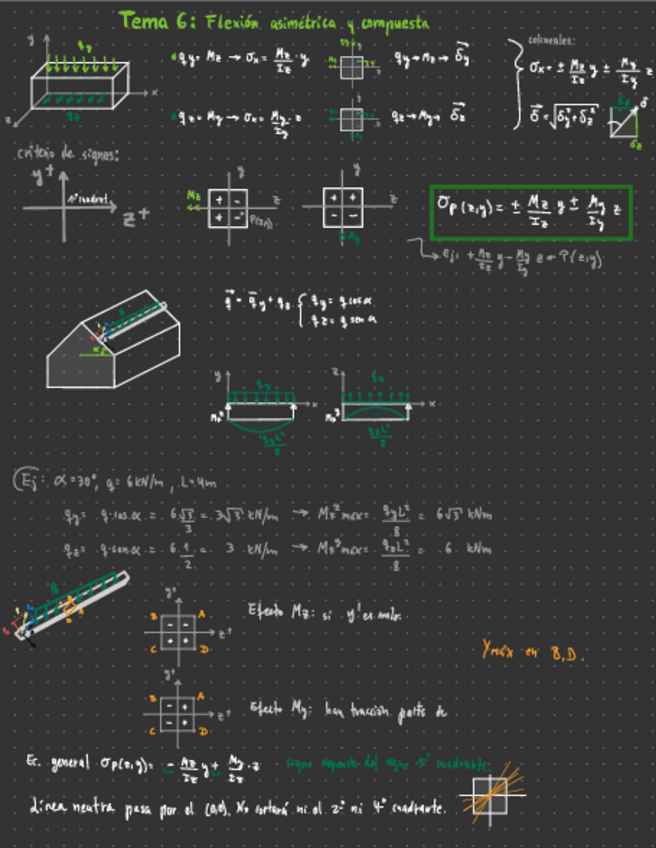 Tema 6: Flexión asimétrica y compuesta
qy = Mz → σx = Mz/Iz · y
qy → Mz → δy
colineales:
σx = ± Mz/Iz y ± My/Iy z
qz = My → σx = My/Iy · z
qz → My → δz
δ = √(δy² + δz²)
criterio de signos:
y+
1º cuadrant.
z+
Mz
P(z,y)
My
σp(z,y) = ± Mz/Iz y ± My/Iy z
Ej: + Mz/Iz y - My/Iy z → P(z,y)
q = qy + qz { qy = q cos α
qz = q sen α
qy
qz
qyL²/8
qzL²/8
Ej: α=30º, q= 6kN/m, L=4m
qy = q·cos α = 6·√3/3 = 3√3 kN/m → MFz max = qyL²/8 = 6√3 kNm
qz = q·sen α = 6·1/2 = 3 kN/m → MFy max = qzL²/8 = 6 kNm
y+
B A
z+
C D
Efecto Mz: si y
Ymáx en B,D.
y+
B A
z+
C D
Efecto My: han tracción parts de
Ec. general σp(z,y) = - Mz/Iz y + My/Iy · z
signo 1º cuadrante.
Línea neutra pasa por el (0,0). No cortará ni el 2º ni 4º cuadrante.